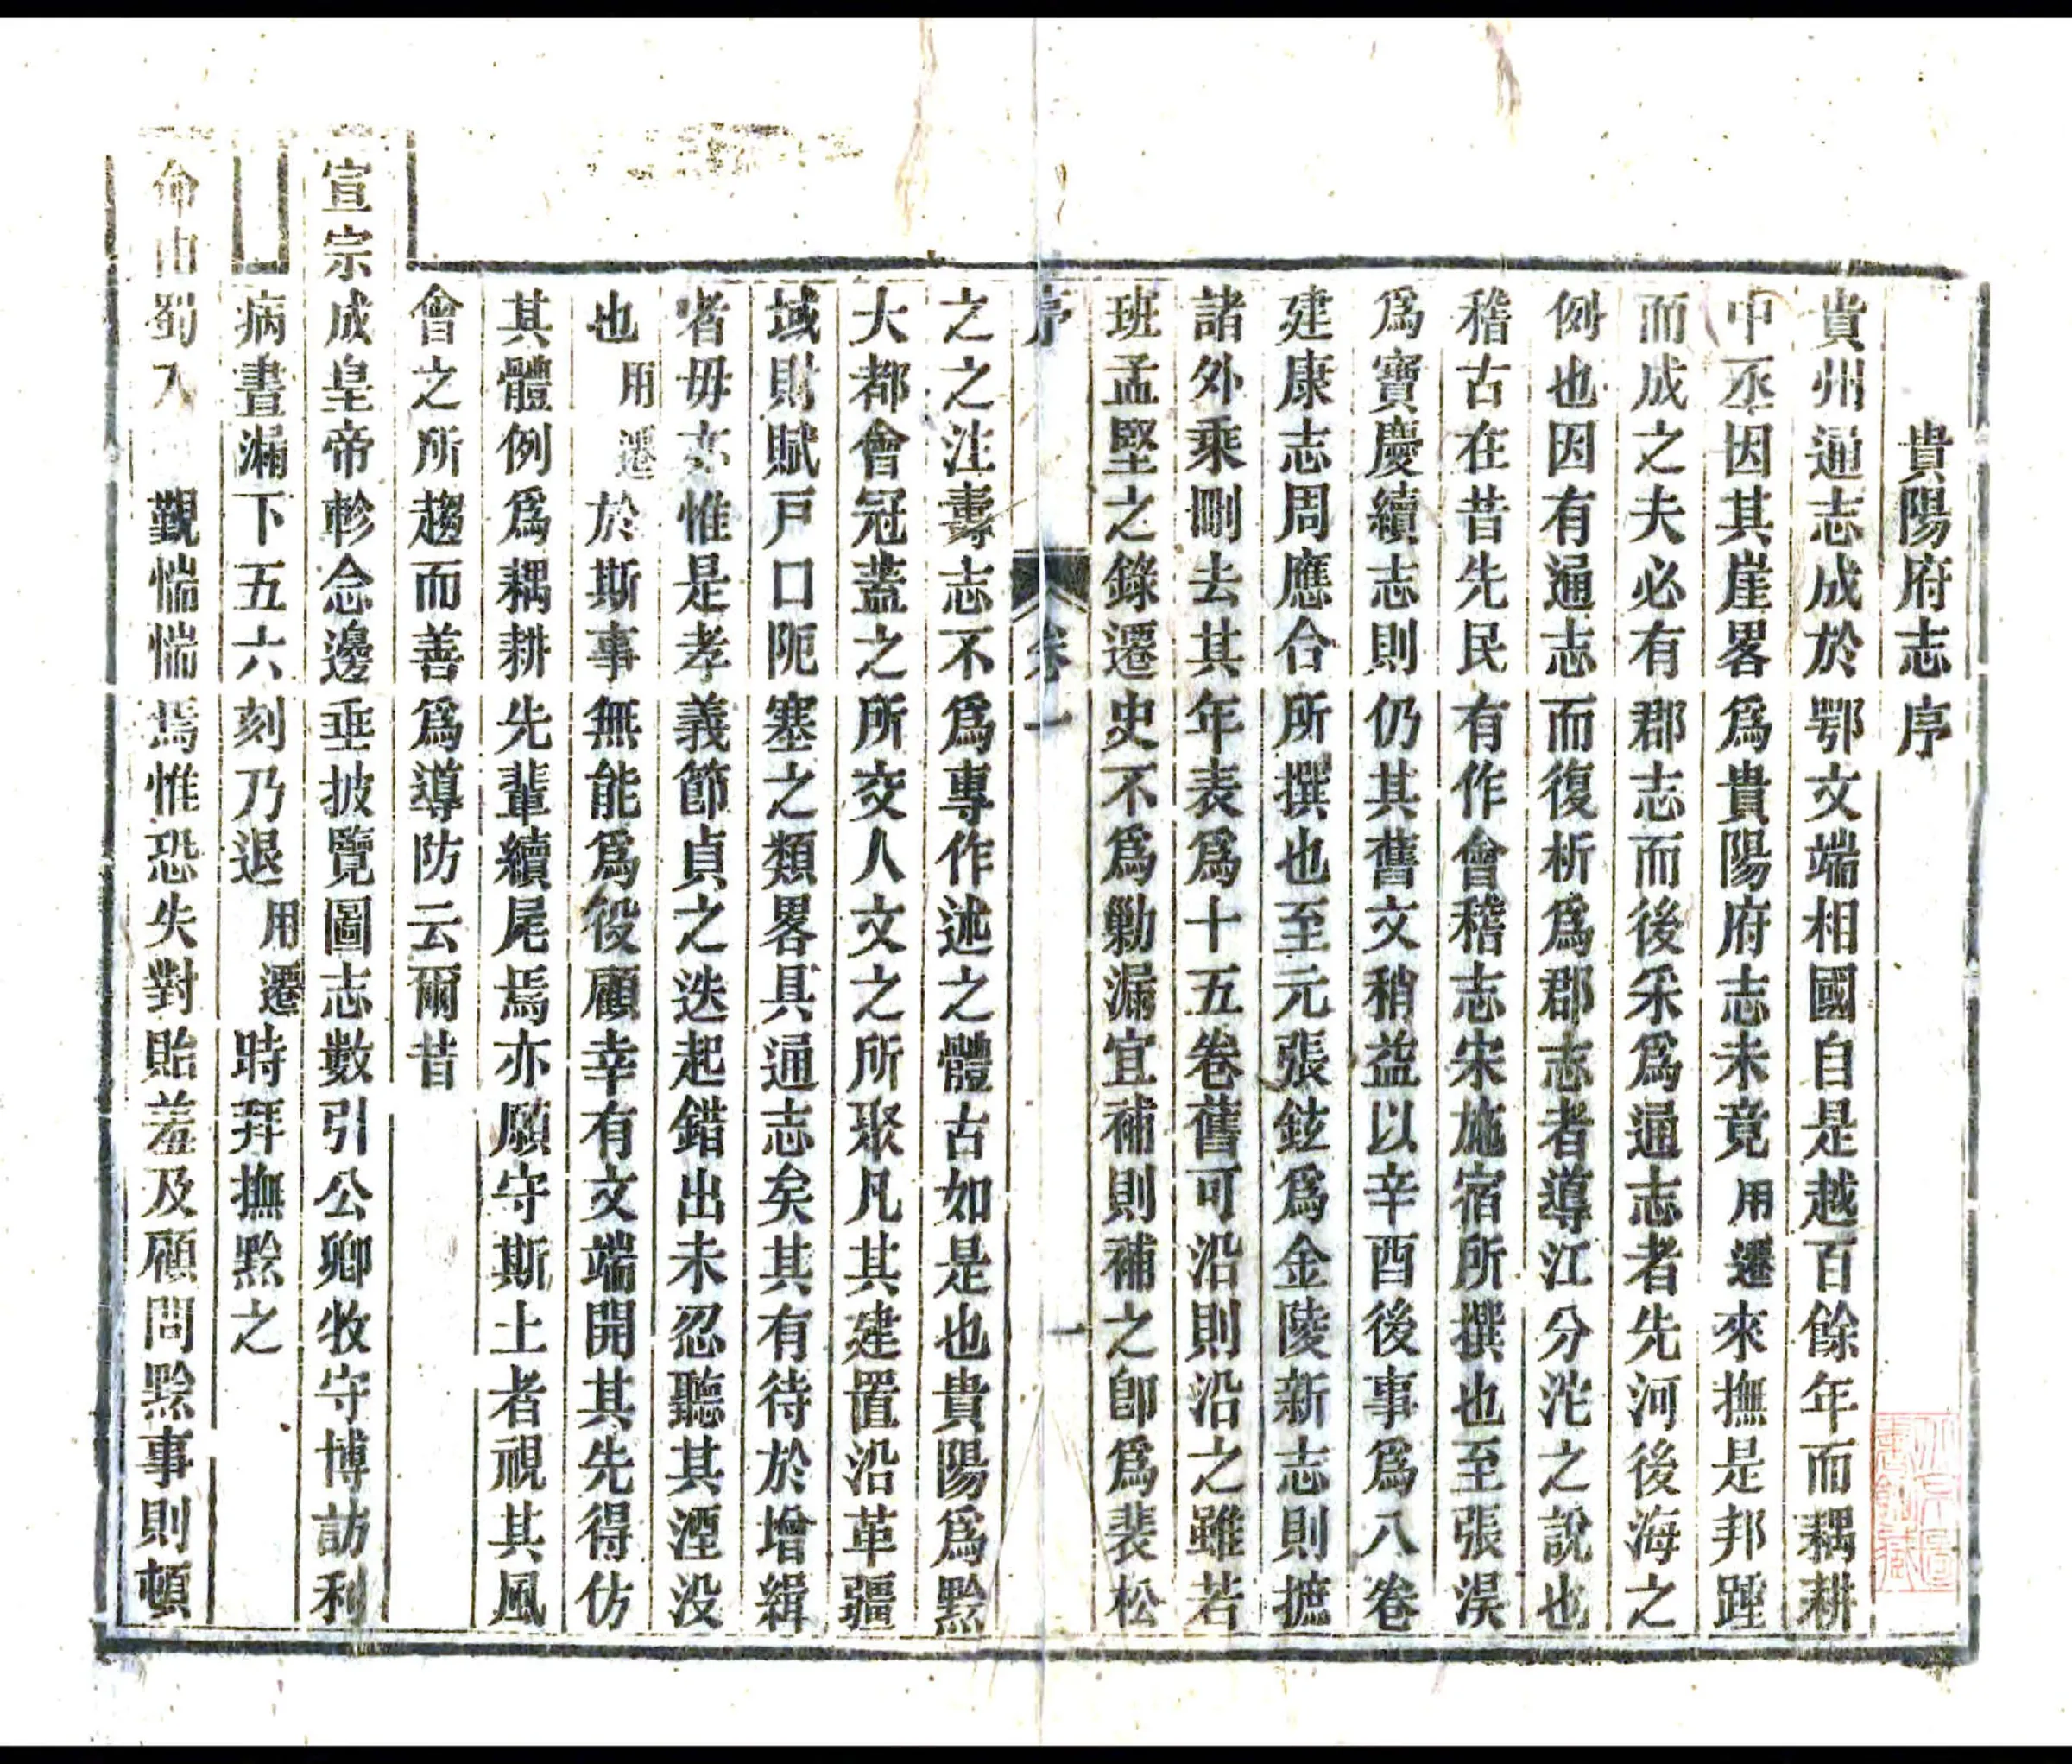 貴陽府志序
貴州通志成於鄂文端相國自是越百餘年而耦耕
中丞因其崖畧爲貴陽府志未竟用遷來撫是邦踵
而成之夫必有郡志而後采爲通志者先河後海之
例也因有通志而復析爲郡志者導江分沱之說也
稽古在昔先民有作會稽志宋施宿所撰也至張淏
爲寶慶續志則仍其舊文稍益以辛酉後事爲八卷
建康志周應合所撰也至元張鉉爲金陵新志則摭
諸外乘刪去其年表爲十五卷舊可沿則沿之雖若
班孟堅之錄遷史不爲勦漏宜補則補之卽爲裴松
序
卷一
一
之之注壽志不爲專作述之體古如是也貴陽爲黔
大都會冠蓋之所交人文之所聚凡其建置沿革疆
域財賦戸口阨塞之類畧具通志矣其有待於增緝
者毋亦惟是孝義節貞之迭起錯出未忍聽其湮没
也用遷於斯事無能爲役顧幸有文端開其先得仿
其體例爲耦耕先輩續尾焉亦願守斯土者視其風
會之所趨而善爲導防云爾昔
宣宗成皇帝軫念邊垂披覽圖志數引公卿牧守博訪利
病晝漏下五六刻乃退用遷時拜撫黔之
命由蜀入覲惴惴焉惟恐失對貽羞及顧問黔事則頓